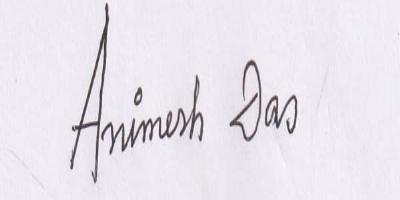 Animesh Das